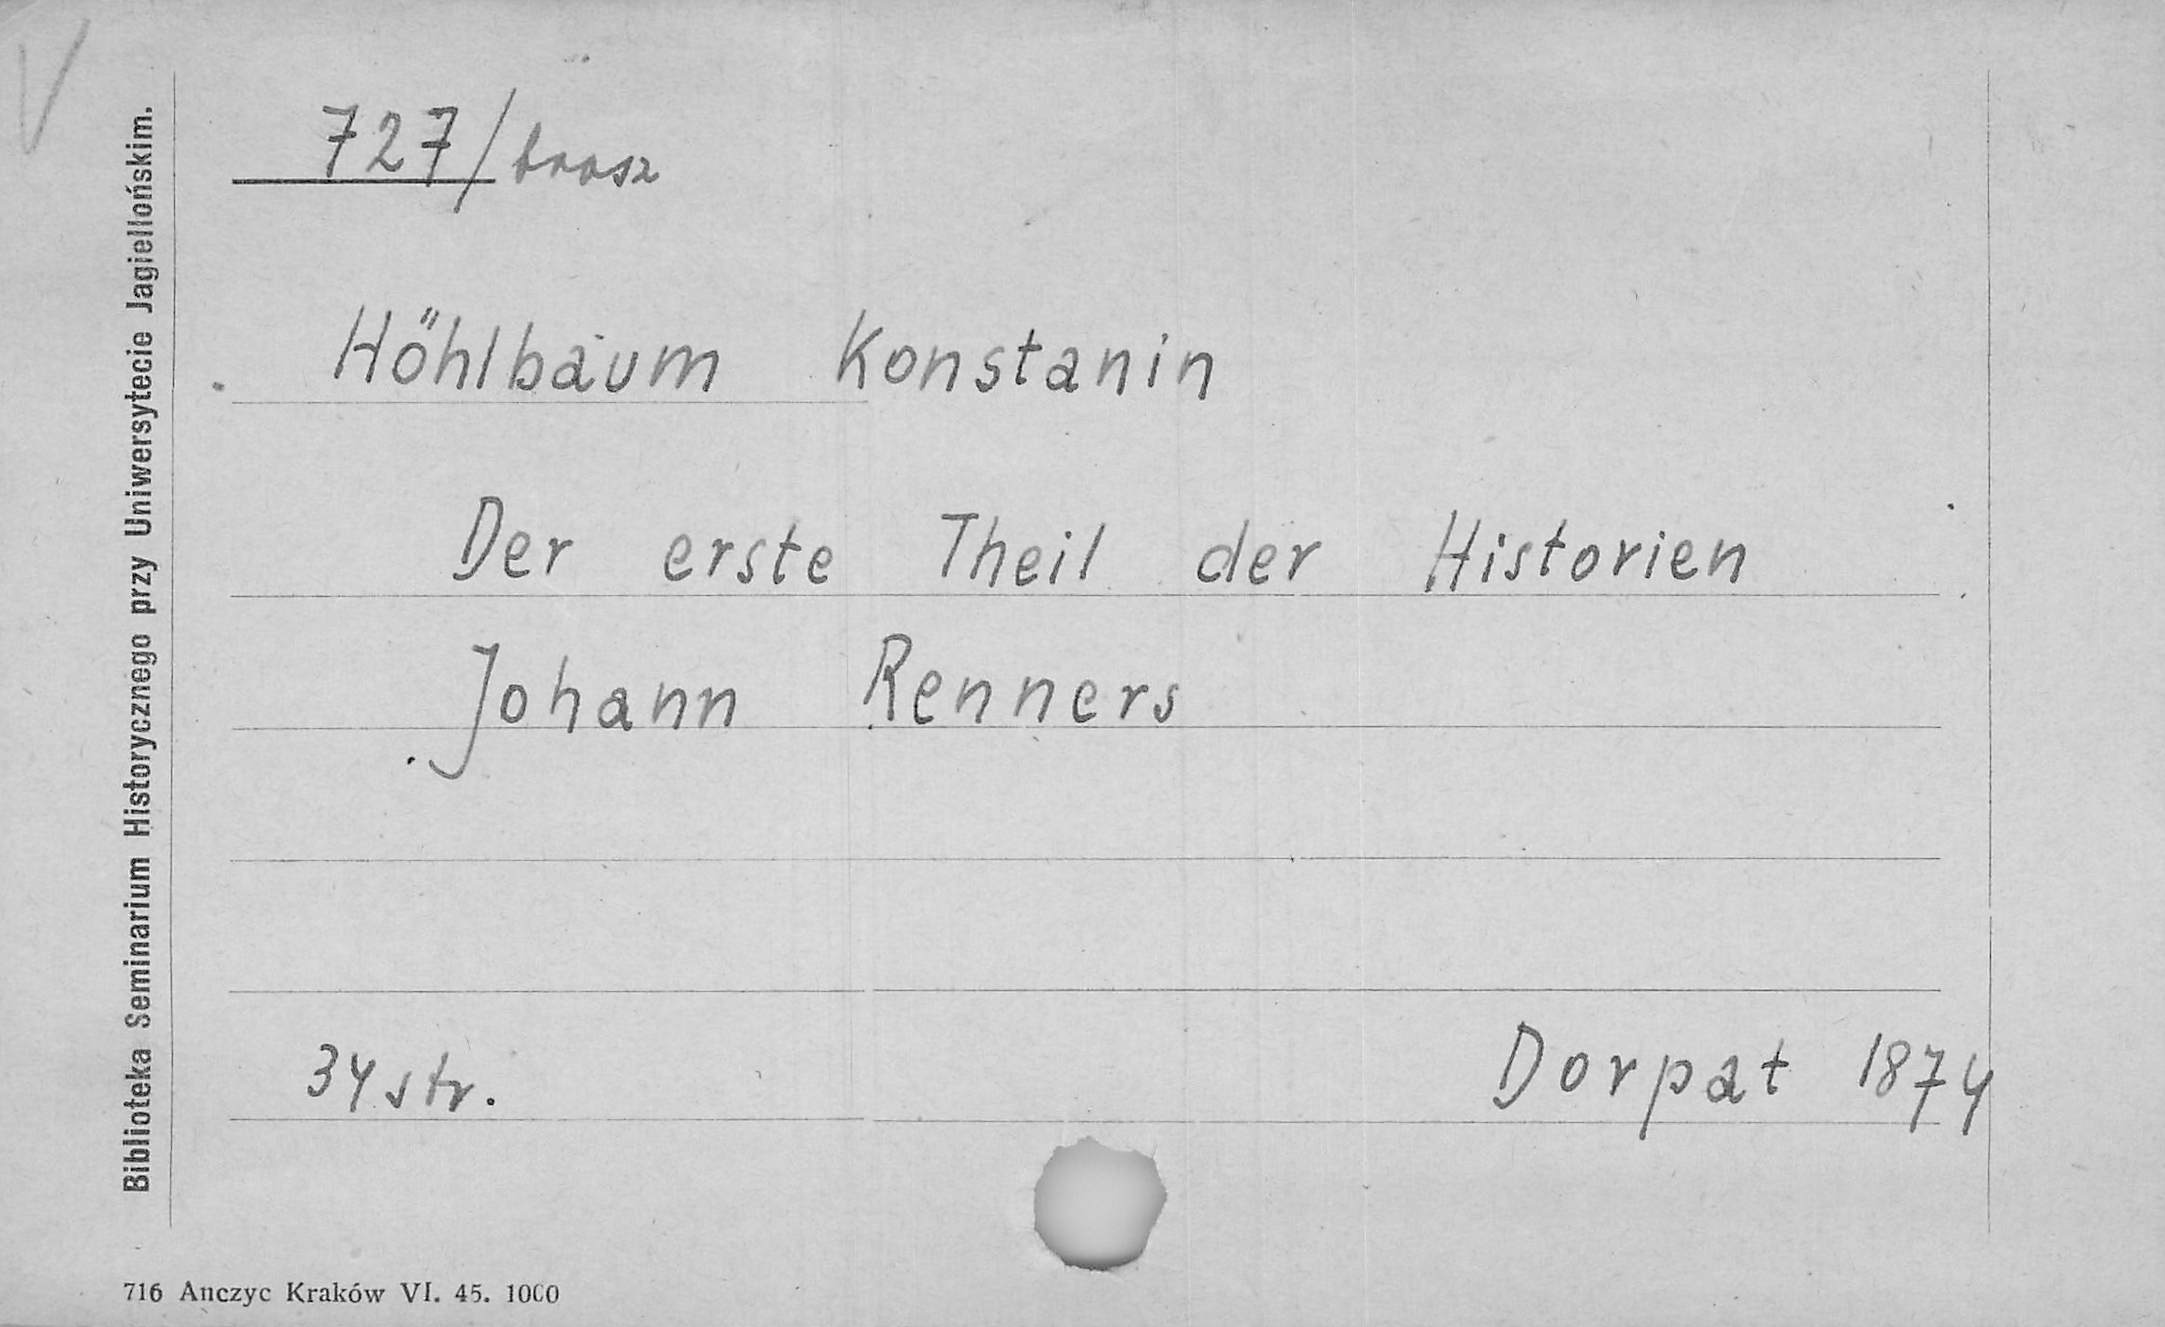 727/brosz
Höhlbaum Konstanin
Der erste Theil der Historien
Johann Renners
34 str.
Dorpat 1874
Biblioteka Seminarium Historycznego przy Uniwersytecie Jagiellońskim.
716 Anczyc Kraków VI. 45. 1000